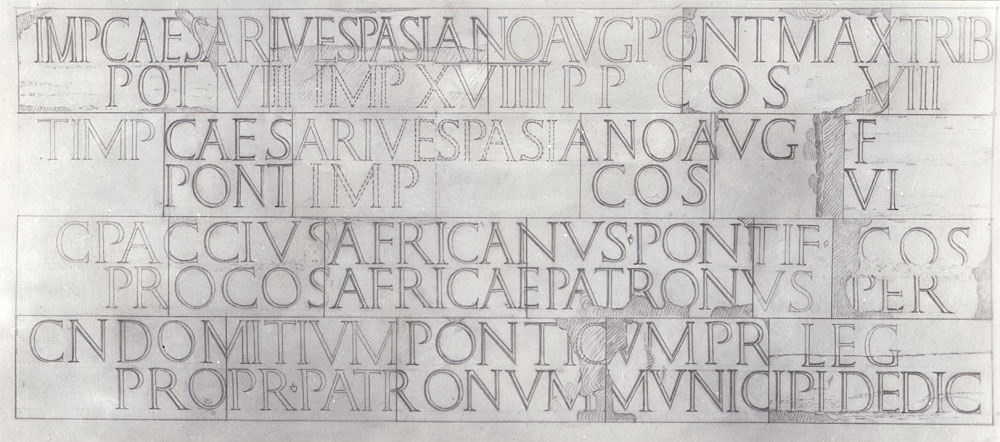 IMP CAESARI VESPASIANO AVG PONT MAX TRIB
POT VIIII IMP XVIIIII P P COS VIIII
T IMP CAESARI VESPASIANO AVG F
PONT IMP COS VI
C PACCIVS AFRICANVS · PONTIF · COS
PROCOS AFRICAE PATRONVS PER
CN DOMITIVM PONTICVM PR LEG
PRO PR · PATRONVM MVNICIPI DEDIC